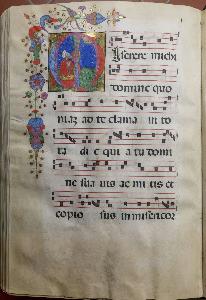 Miserere michi
domine quo
niaz ad te clama ui to
ta di e qui a tu domi
ne sua uis ac mi tis et
copio sus in misericor